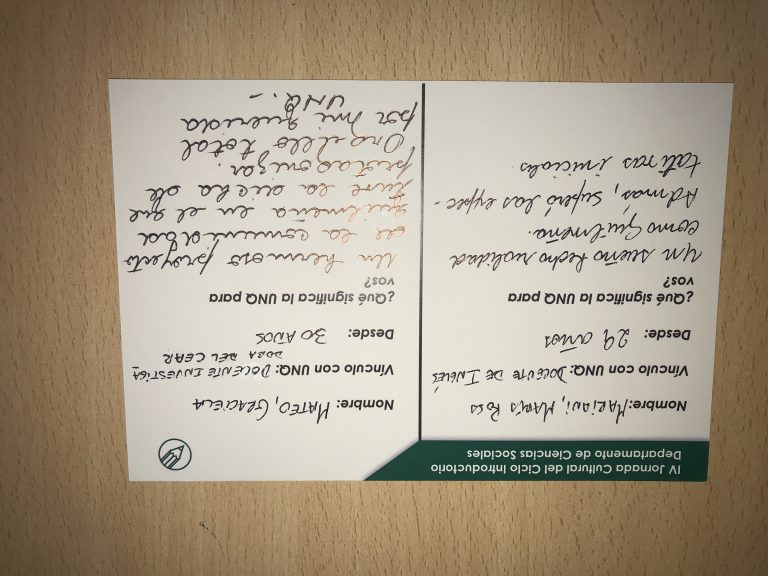 IV Jornada Cultural del Ciclo Introductorio
Departamento de Ciencias Sociales
Nombre: MARIANI, MARÍS ROSA
Vínculo con UNQ: DOCENTE DE INGLÉS
Desde: 29 años
¿Qué significa la UNQ para
vos?
Un sueño hecho realidad
como Quilmeña.
Además, superó las expec-
tativas iniciales.
Nombre: MATEO, GRACIELA
Vínculo con UNQ: DOCENTE INVESTIGA
DORA DEL CEAR
Desde: 30 AÑOS
¿Qué significa la UNQ para
vos?
Un hermoso proyecto
de la comunidad
quilmeña en el que
tuve la dicha de
protagonizar.
Orgullo total
por mi querida
UNQ.-